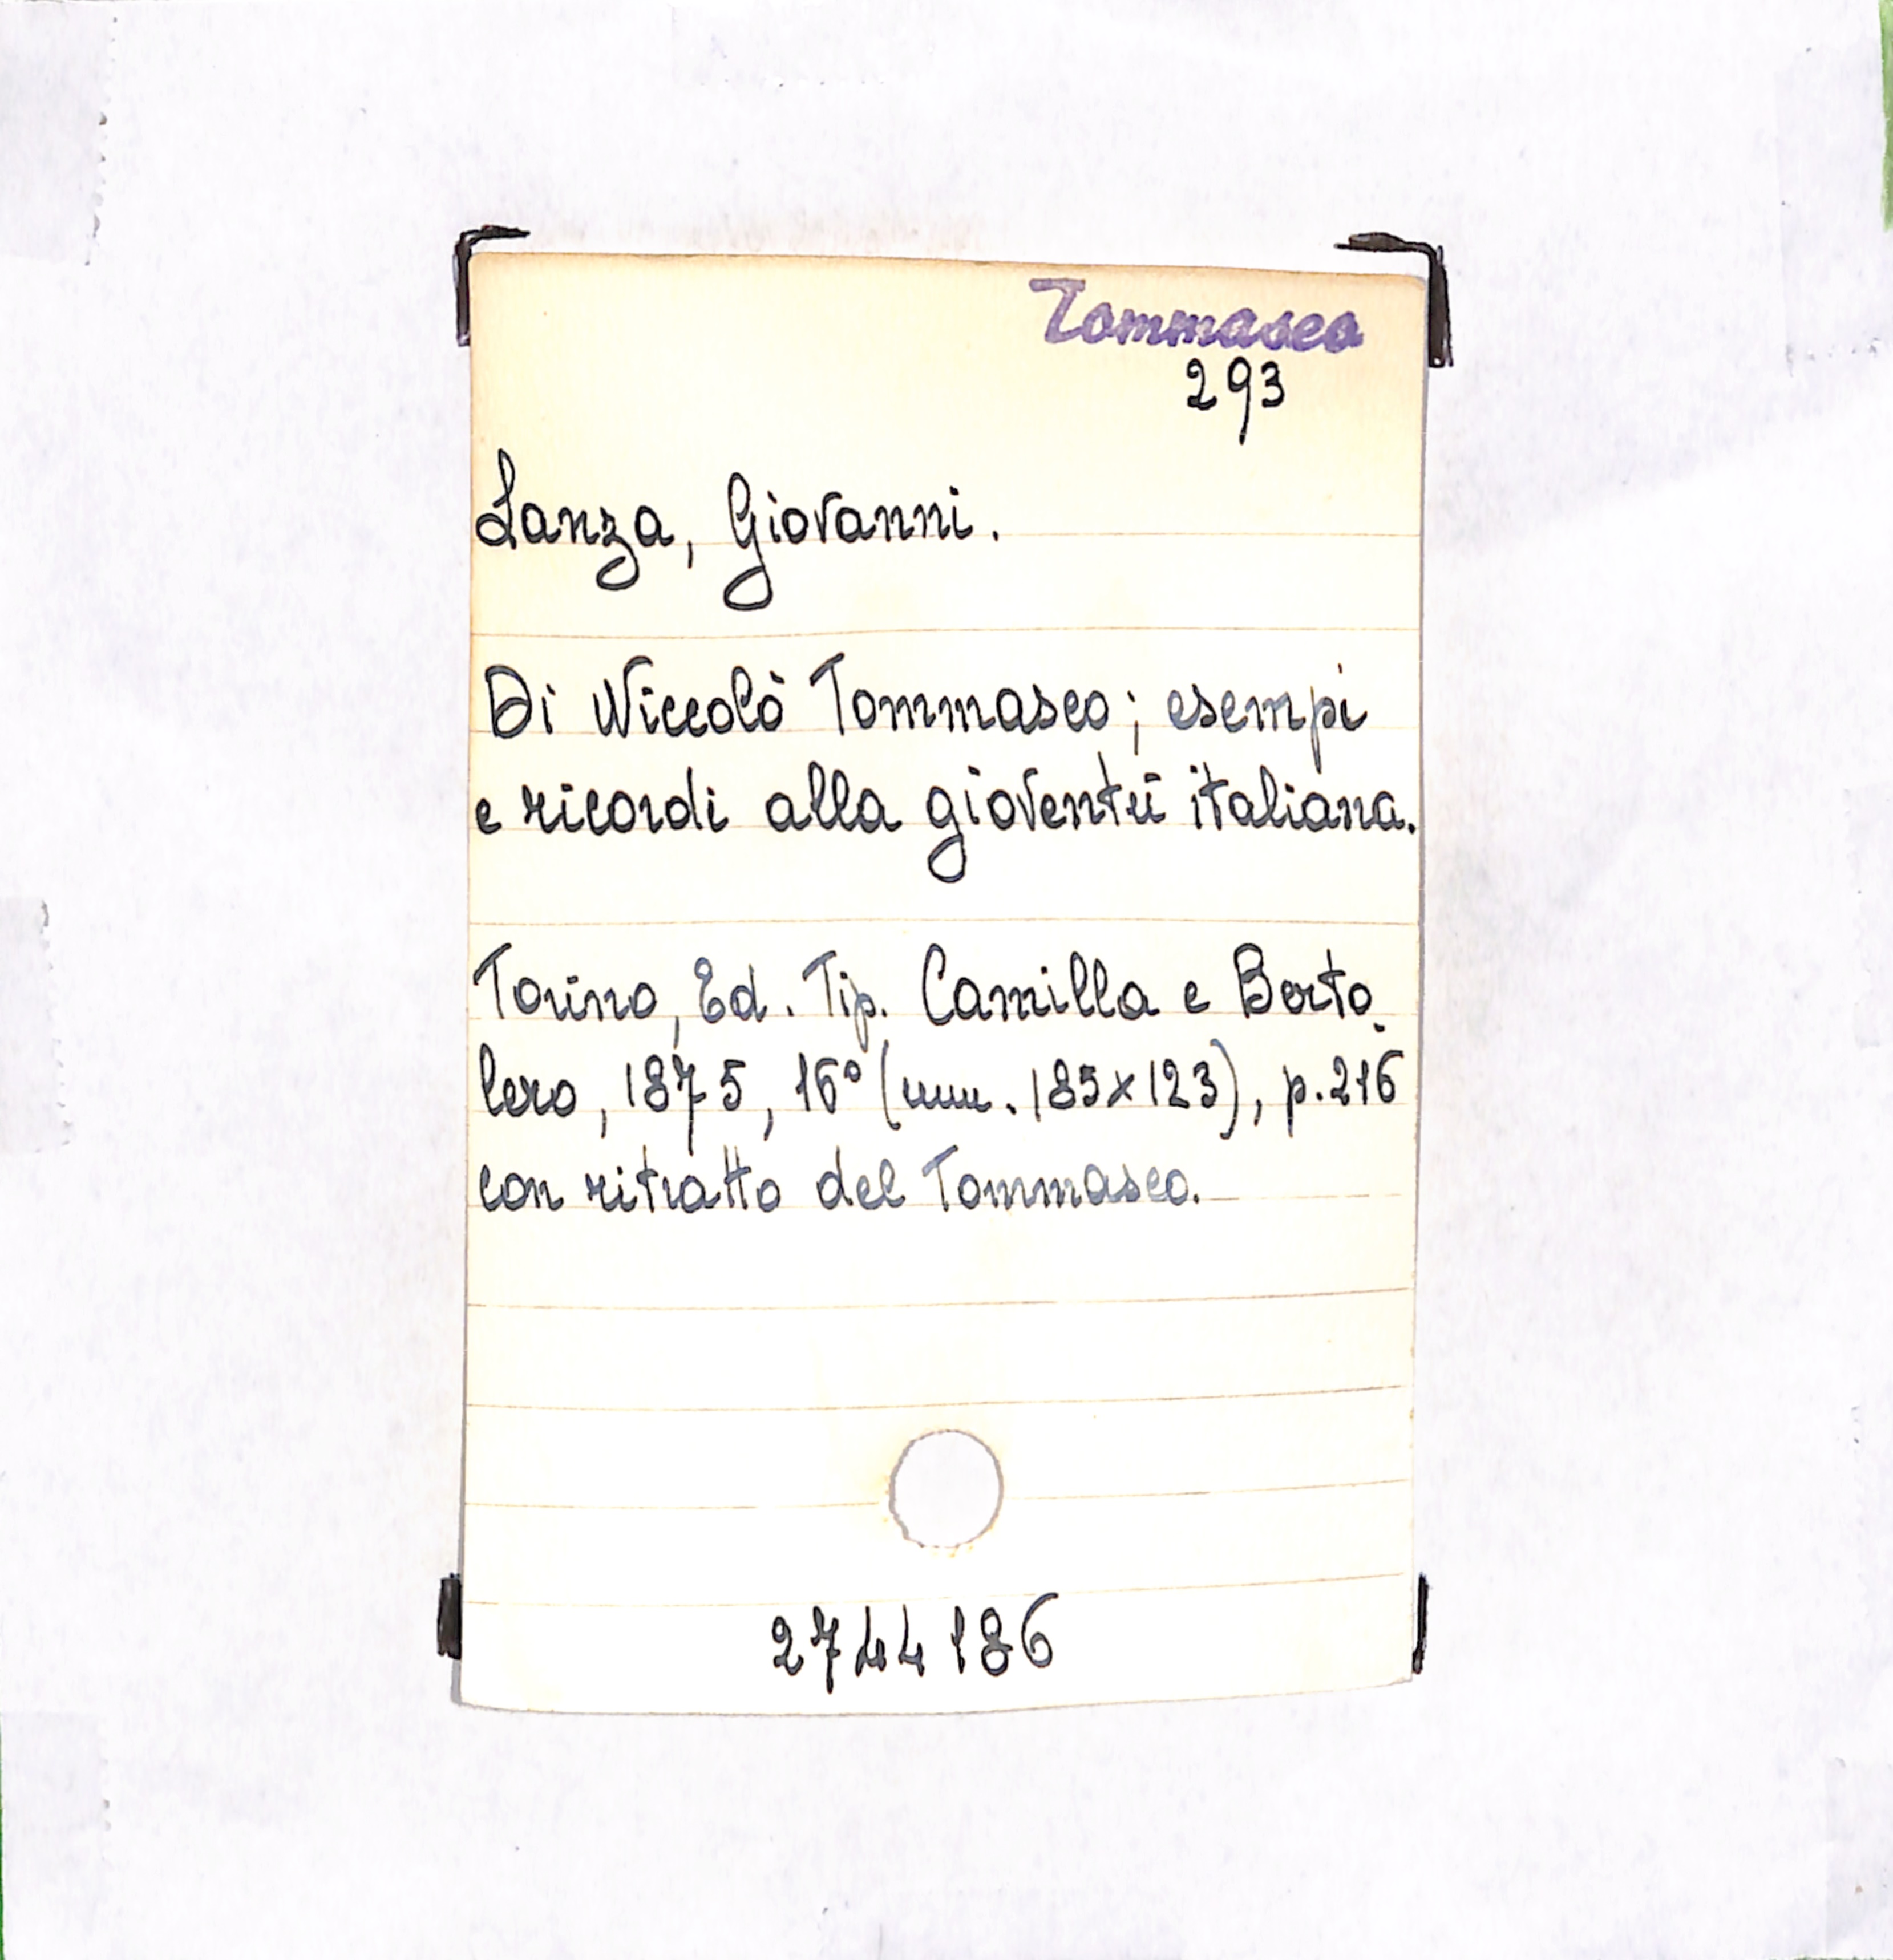 Tommaseo
293
Lanza, Giovanni.
Di Niccolò Tommaseo; esempi
e ricordi alla gioventù italiana.
Torino, Ed. Tip. Camilla e Berto-
lero, 1875, 16° (mm. 185x123), p. 216
con ritratto del Tommaseo.
2744186